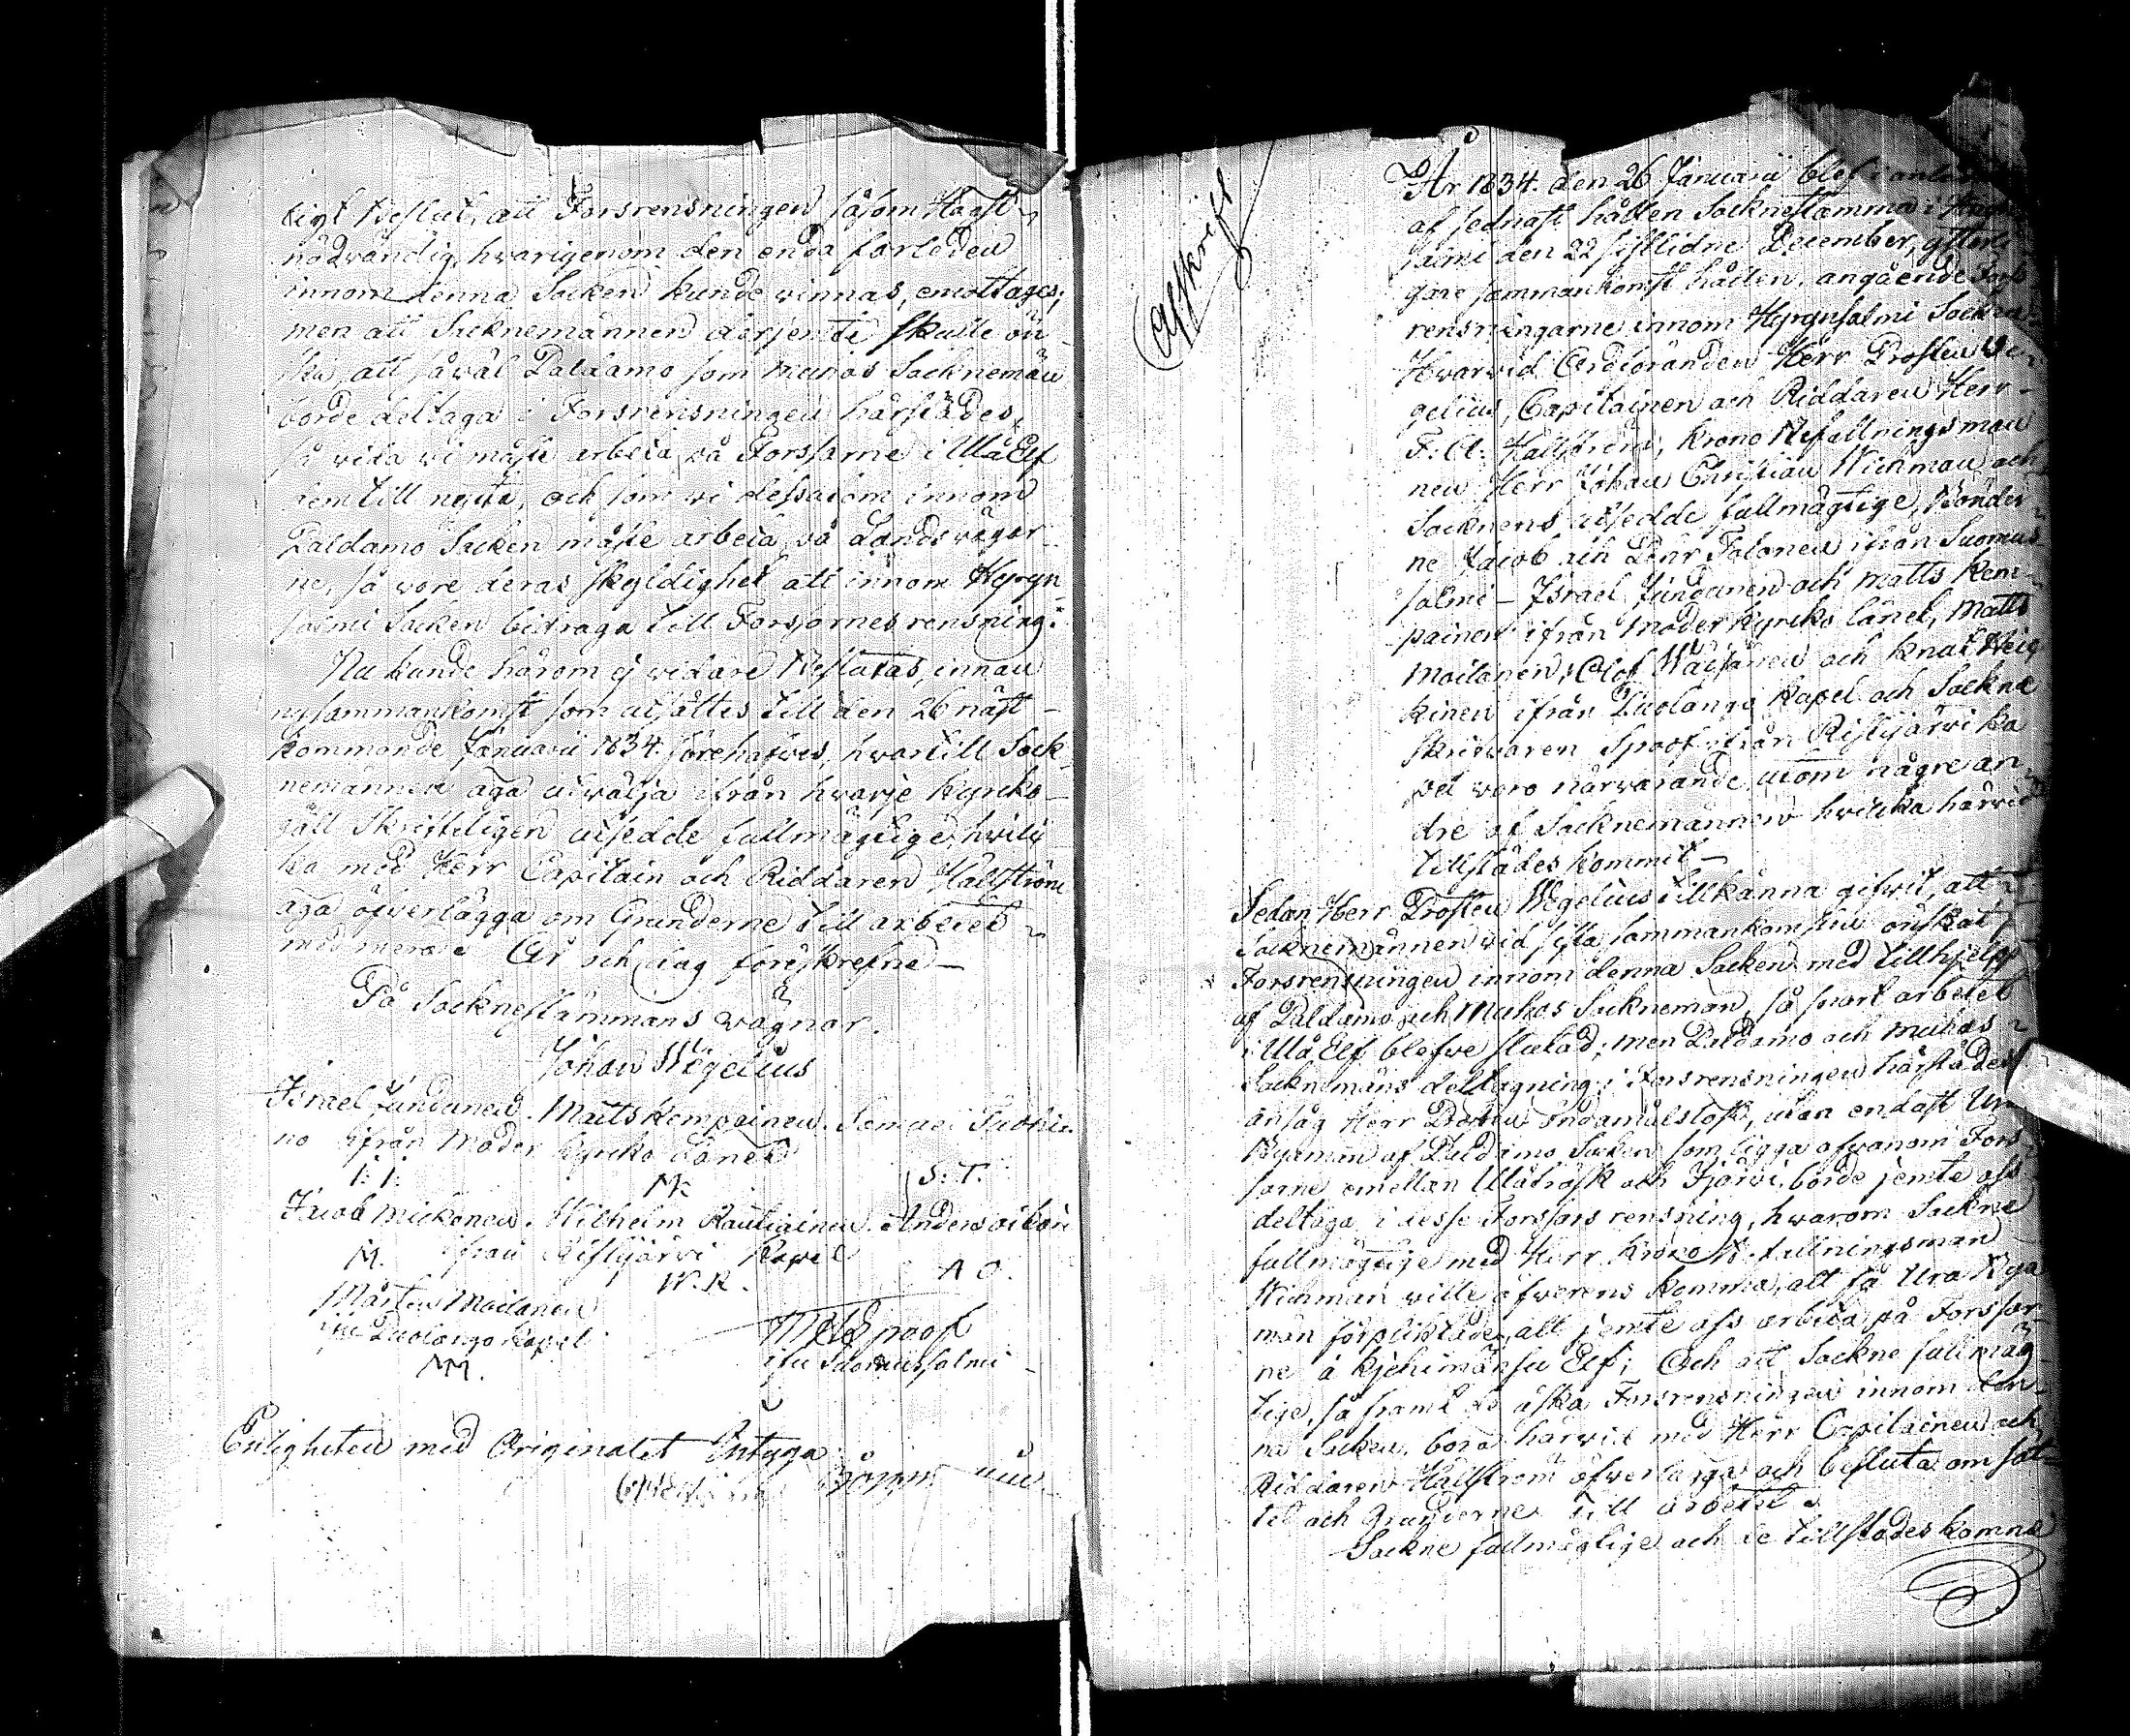 tigt Beslut, att Forsrensningen såsom Högst
nödvändig, hvarigenom den enda farleden
innom denna Socken kunde vinnas, emottages;
men att Socknemännen derjemte skulle ön-
ska, att såväl Paldamo som Muhos Socknemän
borde deltaga i Forsrensningen härstädes,
så vida wi måste arbeta på Forssarne i Ulå Elf
dem till nytta, och som wi dessutom innom
Paldamo Socken måste arbeta på Landsvägar-
ne, så vore deras skyldighet att innom Hyryn-
salmi Socken bidraga till Forssarnes rensning.
Nu kunde härom ej vidare Beslutas, innan
ny sammankomst som utsättes till den 26 näst-
kommande Januarii 1834. förehafves, hvartill Sock-
nemännen äga utvälja ifrån hvarje Kyrko-
gäll Skrifteligen utsedde fullmägtige, hvilc
ka med Herr Capitain och Riddaren Hällström
äga öfverlägga om Grunderne till arbetet
med mera. År och dag föreskrefne —
På Socknestämmans vägnar.
Johan Wegelius
Israel Jundunen. Matts Kempainen. Samuel
no ifrån Moder Kyrko Länet
I: I: M: S: T.
Jacob Mickonen. Wilhelm Rautiainen. Anders
M. ifrån Ristijärvi Kapel
W. R. A O.
Mårten Moilanen
ifn Puolango Kapel Spoof
M. ifn Suomussalmi
Enligheten med Originalet Intyga
Afskrift
År 1834. den 26 Januarii blef i
af sednast hållen Socknestämma i
salmi den 22 sistlidne December, ytterli
gare sammankomst hållen, angående Fors
rensningarne innom Hyrynsalmi Socken
Hvarvid Ordföranden Herr Prosten We-
gelius, Capitainen och Riddaren Herr
F. A. Hällström, Krono Befallningsman
nen Herr Johan Christian Wichman och
Socknens utsedde fullmägtige, Bönder
ne Jacob och Pehr Tolonen ifrån Suomus
salmi — Israel Jundunen och Matts Kem-
painen ifrån Moder Kyrko länet, Matts
Moilanen, Olof Wäisänen och Knut Heig
kinen ifrån Puolango Kapel och Sockne
skrivaren Spoof ifrån Ristijärvi Ka
pel voro närvarande utom några an
dre af Socknemännen hvilcka härvid
tillstädes kommit —
Sedan Herr Prosten Wegelius tillkänna gifwit, att
Socknemännen vid sista sammankomsten önskat
Forsrensningen innom denna Socken med tillhjelp
af Paldamo och Muhos Socknemän, så snart arbetet
i Ulå Elf blefve slutad; men Paldamo och Muhos
Socknemäns deltagning i Forsrensningen härstädes
ansåg Herr Prosten ändamålslöst, utan endast Ura
Byamän af Paldamo Socken som ligga ofvanom Fors
sarne emellan Ulåträsk och Ijärvi, borde jemte oss
deltaga i desse Forssars rensning, hvarom Sockne
fullmägtige med Herr Krono Befallningsman
Wichman ville öfverens komma, att få Ura Bya
män förpliktade, att jemte oss arbeta på Forssar-
ne å Kjehimänsu Elf; Och att Sockne fullmäg
tige, så framt de åska Forsrensningen innom den-
na Socken, bora härvid med Herr Capitainen och
Riddaren Hällström öfverlägga och besluta om
tet och Grunderne till arbetet.
Sockne fullmägtige och de tillstädeskomne